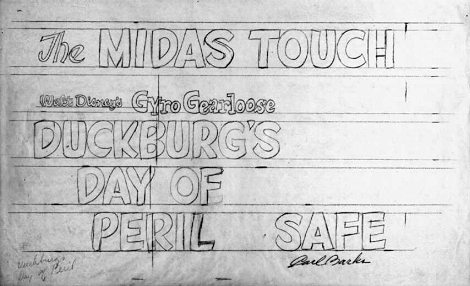 The MIDAS TOUCH
Walt Disney's Gyro Gearloose
DUCKBURG'S
DAY OF
PERIL SAFE
Carl Barks
Duckburgs
Day of Peril